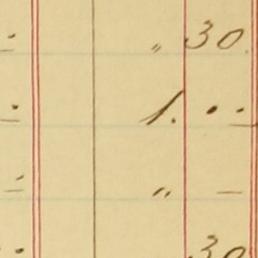 " 30.
1. . .
" —
30